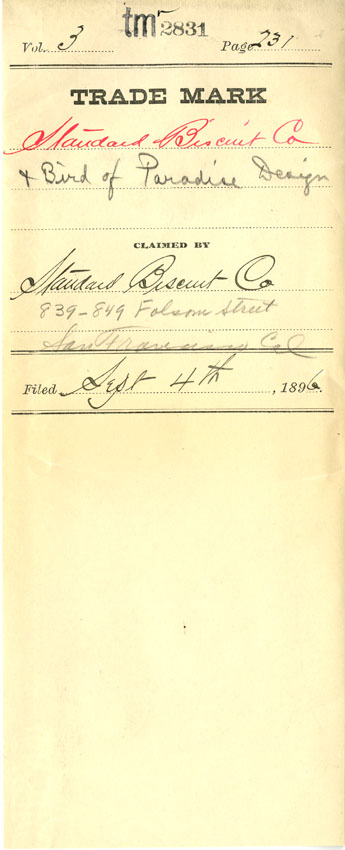 tm 2831
Vol. 3 Page 231
TRADE MARK
Standard Biscuit Co
& Bird of Paradise Design
CLAIMED BY
Standard Biscuit Co
839-849 Folsom Street
San Francisco Cal
Filed Sept 4th, 1896.